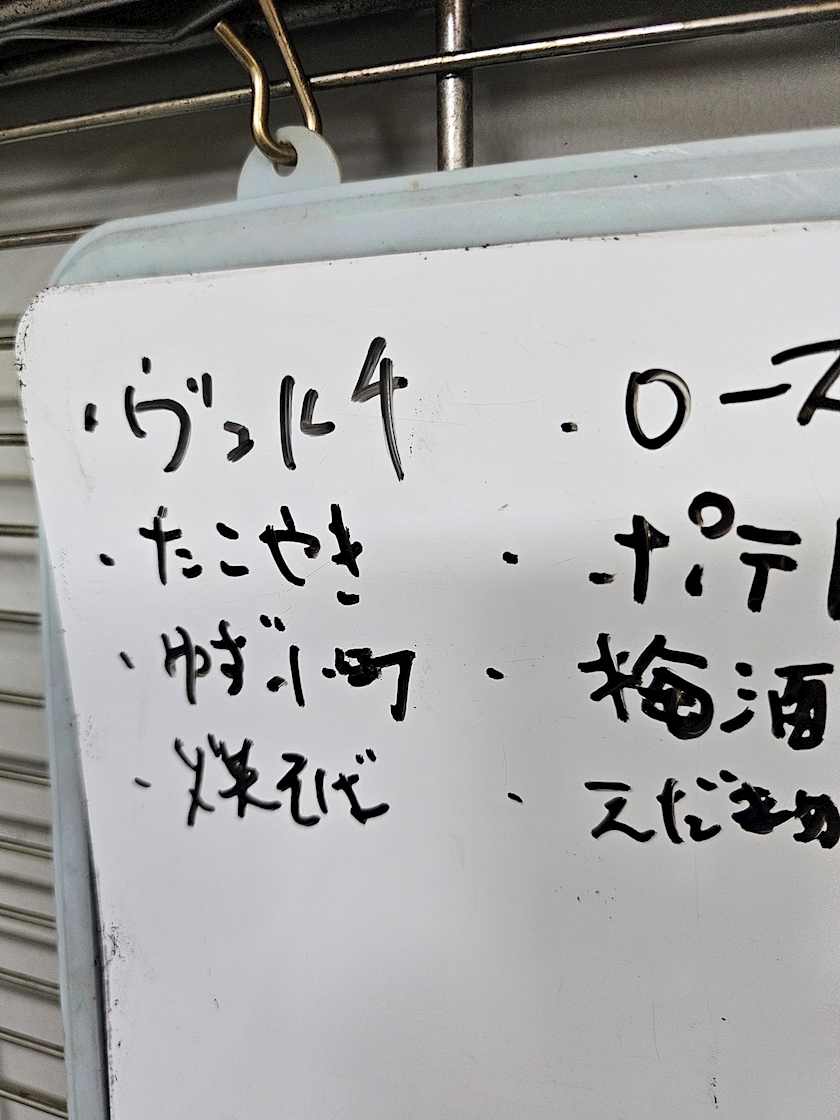 ・ヴルスト
・たこやき
・ゆず小町
・焼そば
・ロース
・ポテト
・梅酒
・えだまめ